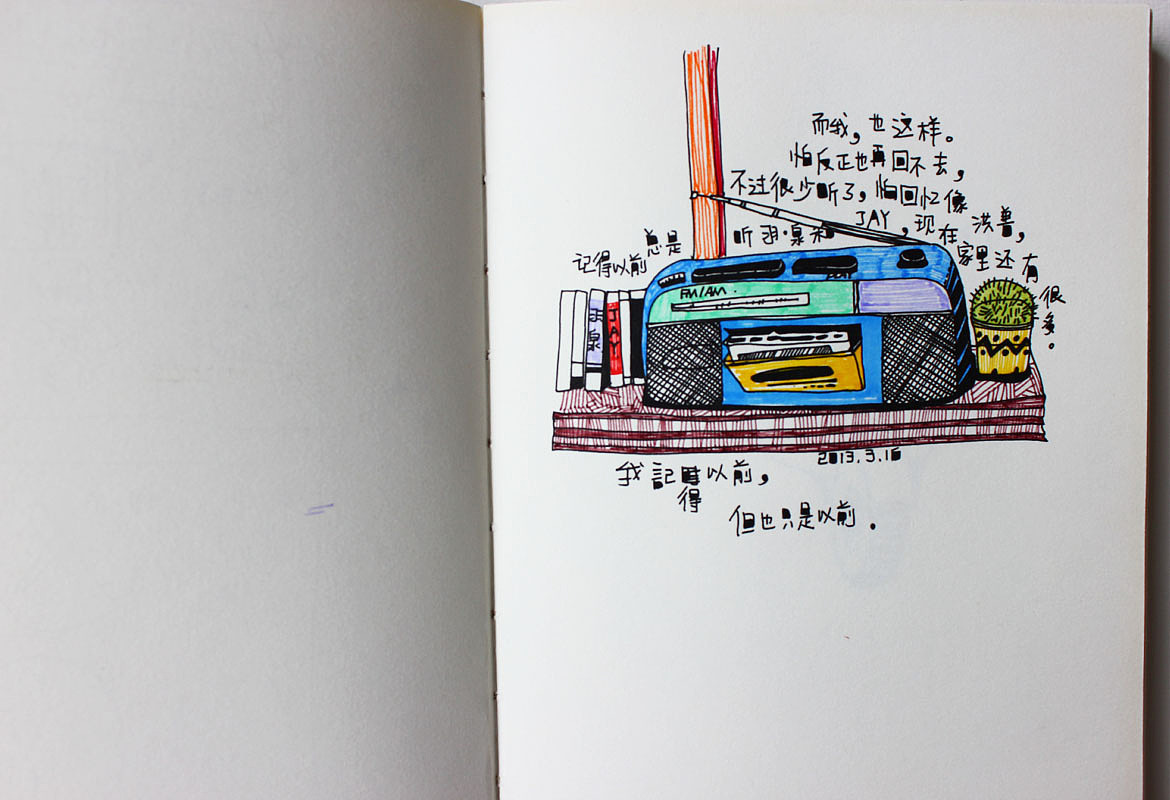 记得以前总是听羽·泉和JAY，现在家里还有很多。
不过很少听了，怕回忆像洪兽，
怕反正也再回不去，
而我，也这样。
FM/AM.
羽泉
JAY
2013.3.16
我記得以前，
但也只是以前.